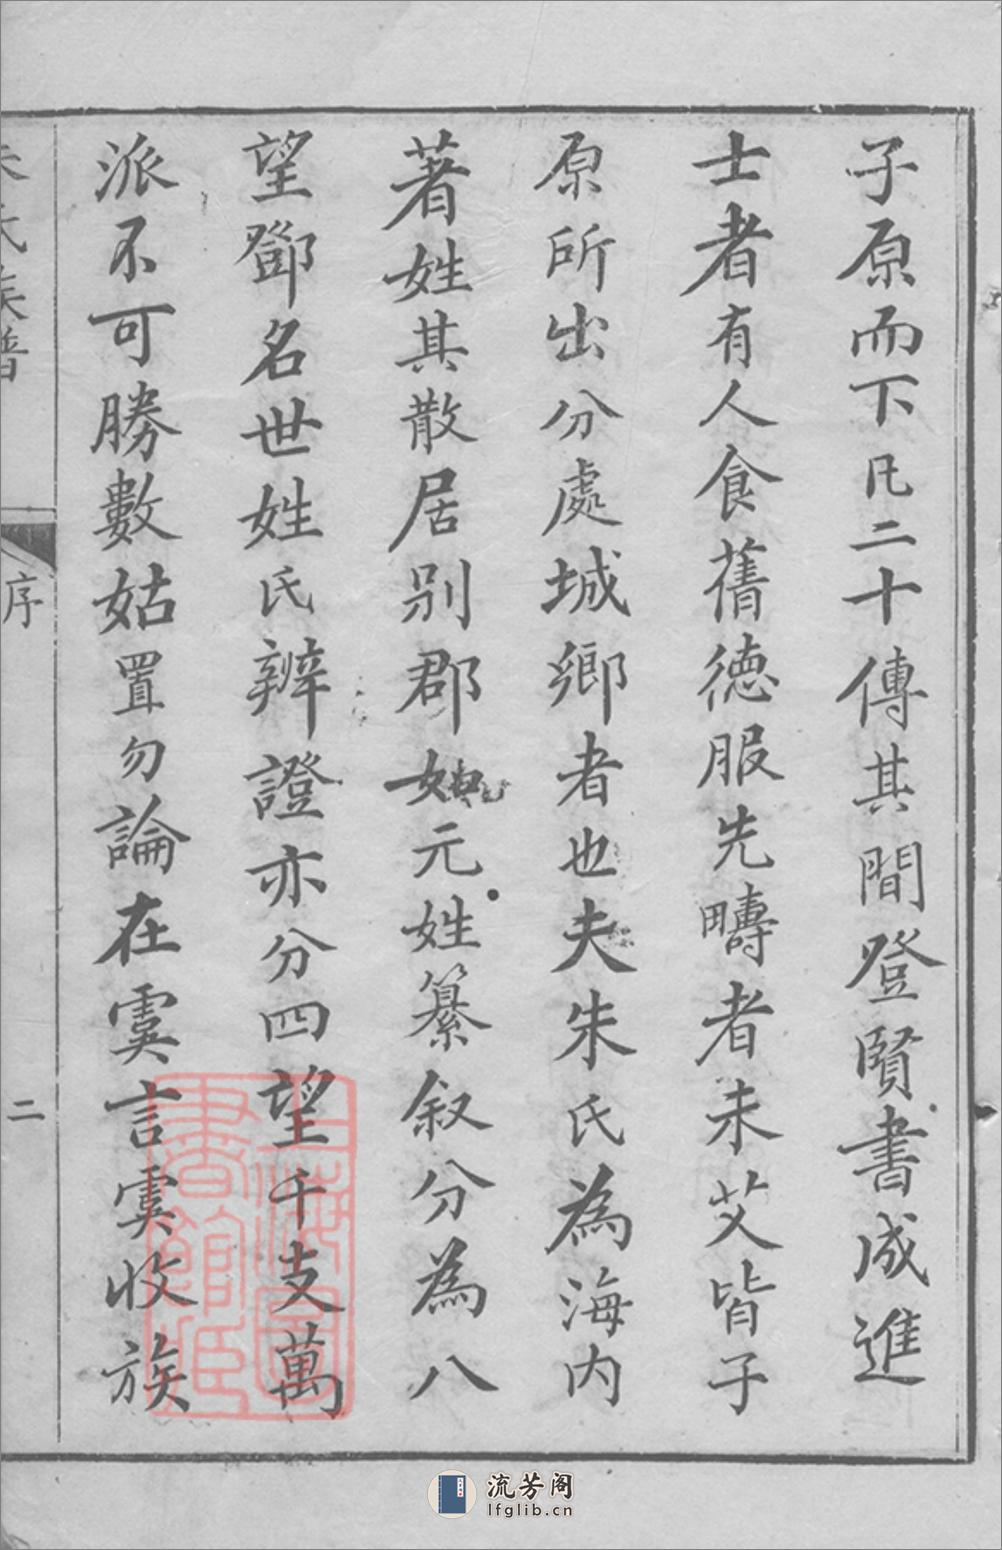 子原而下凡二十傳其間登賢書成進
士者有人食舊德服先疇者未艾皆子
原所出分處城鄉者也夫朱氏為海內
著姓其散居別郡如元姓纂叙分為八
望鄧名世姓氏辨證亦分四望千支萬
派不可勝數姑置勿論在虞言虞收族
朱氏族譜
序
二
上海圖書館藏
流芳阁
lfglib.cn